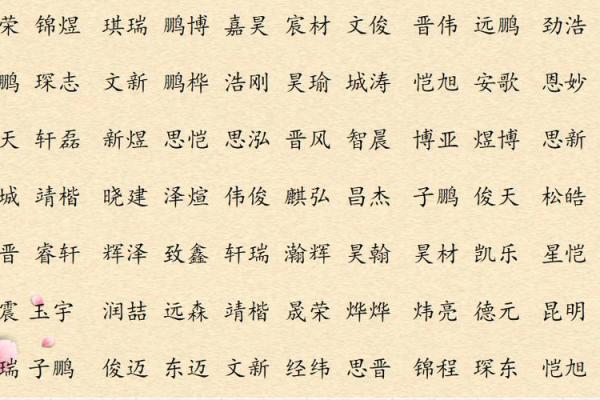 荣 锦煜 琪瑞 鹏博 嘉昊 宸材 文俊 晋伟 远鹏 劲浩
鹏 琛志 文新 鹏桦 浩刚 昊瑜 城涛 恺旭 安歌 恩妙
天 轩磊 新煜 思恺 思泓 晋风 智晨 博亚 煜博 思新
城 靖楷 晓建 泽煊 伟俊 麒弘 昌杰 子鹏 俊天 松皓
晋 睿轩 辉泽 致鑫 轩瑞 瀚辉 昊翰 昊材 凯乐 星恺
震 玉宇 润喆 远森 靖楷 晟荣 烨烨 炜亮 德元 昆明
瑞 子鹏 俊迈 东迈 文新 经纬 思晋 锦程 琛东 恺旭